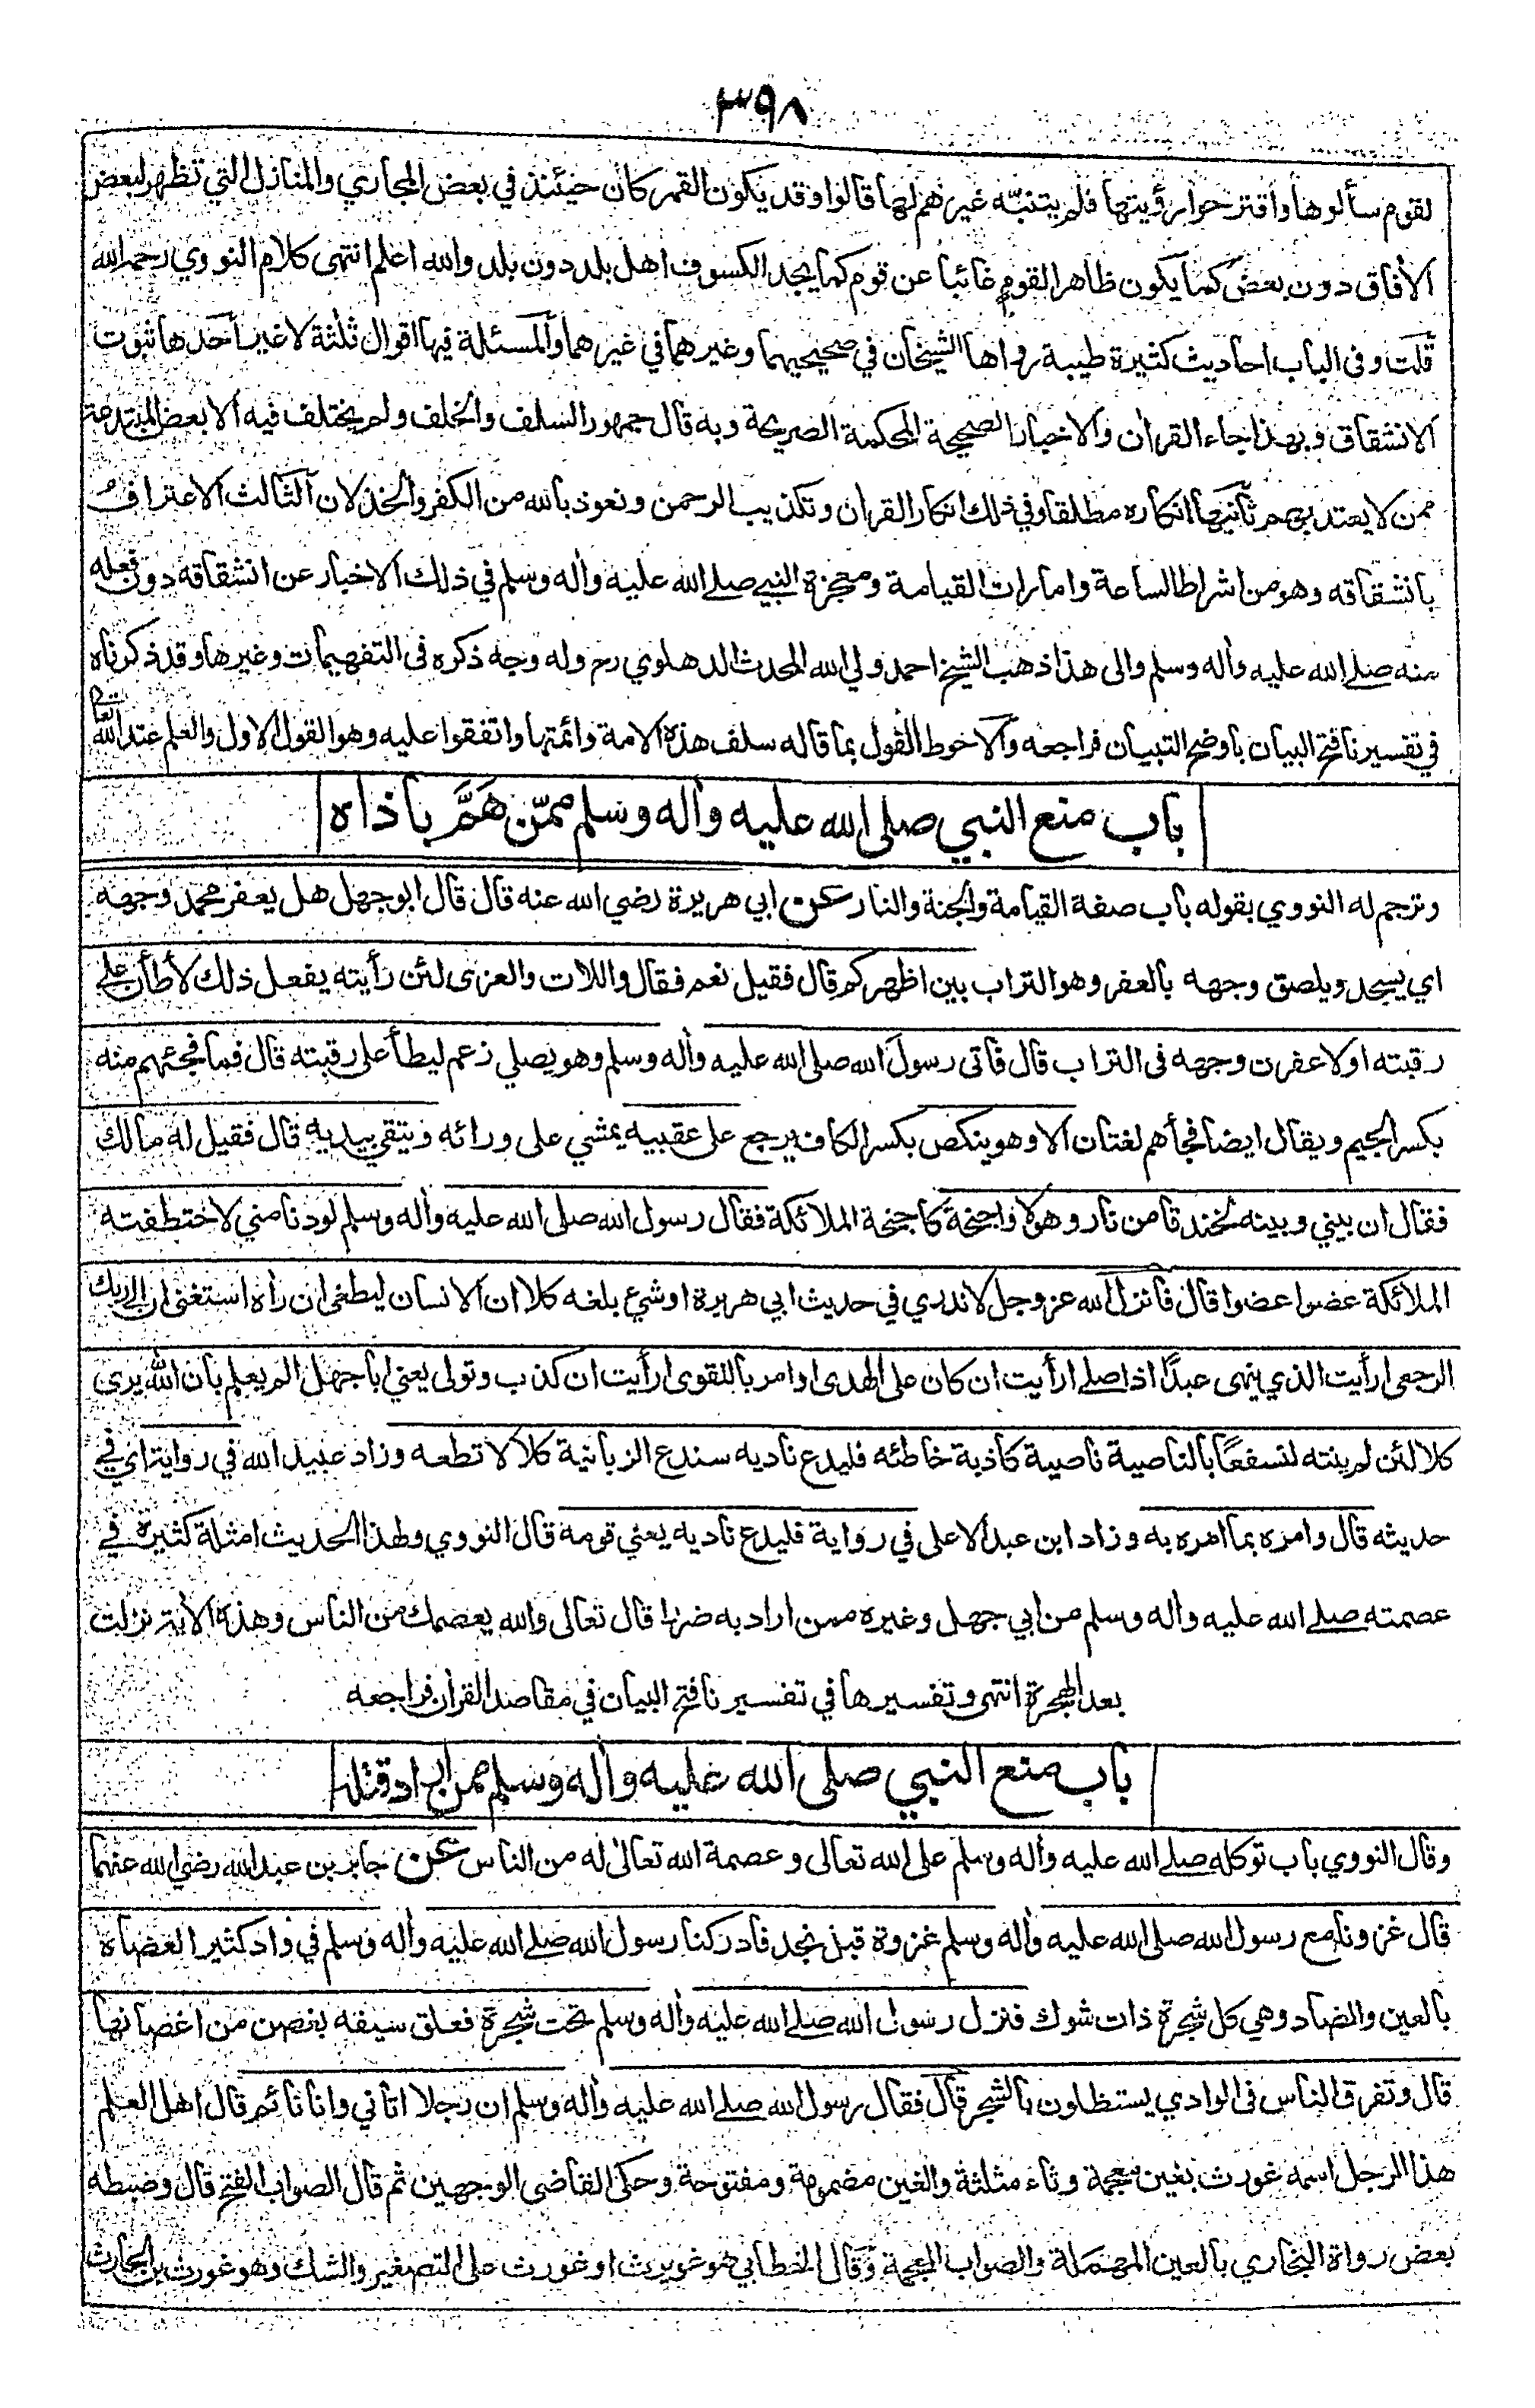 ٣٩٨
لقوم سألوها واقترحوا رؤيتها فلم يتنبه غيرهم لها قالوا وقد يكون القمر كان حينئذ في بعض المجاري والمنازل التي تظهر لبعض
الآفاق دون بعض كما يكون ظاهرا لقوم غائبا عن قوم كما يجد الكسوف اهل بلد دون بلد والله اعلم انتهى كلام النووي رحمه الله
قلت وفى الباب احاديث كثيرة طيبة رواها الشيخان في صحيحيهما وغيرهما في غيرهما والمسئلة فيها اقوال ثلثة لا غير احدها ثبوت
الانشقاق وبهذا جاء القرأن والاخبار الصحيحة المحكمة الصريحة وبه قال جمهور السلف والخلف ولم يختلف فيه الا بعض المبتدعة
ممن لا يعتد بهم ثانيها انكاره مطلقا وفي ذلك انكار القرأن وتكذيب الرحمن ونعوذ بالله من الكفر والخذلان الثالث الاعتراف
بانشقاقه وهو من اشراط الساعة وامارات القيامة ومعجزة النبي صلى الله عليه وأله وسلم في ذلك الاخبار عن انشقاقه دون فعله
منه صلى الله عليه وأله وسلم والى هذا ذهب الشيخ احمد ولي الله المحدث الدهلوي رح وله وجه ذكره فى التفهيمات وغيرها وقد ذكرناه
في تفسيرنا فتح البيان باوضح التبيان فراجعه والاحوط القول بما قاله سلف هذه الامة وائمتها واتفقوا عليه وهو القول الاول والعلم عند الله تعالى
باب منع النبي صلى الله عليه وأله وسلم ممّن هَمَّ بأذاه
وترجم له النووي بقوله باب صفة القيامة والجنة والنار عن ابي هريرة رضي الله عنه قال قال ابو جهل هل يعفر محمد وجهه
اي يسجد ويلصق وجهه بالعفر وهو التراب بين اظهركم قال فقيل نعم فقال واللات والعزى لئن رأيته يفعل ذلك لأطأن على
رقبته او لاعفرن وجهه فى التراب قال فاتى رسول الله صلى الله عليه وأله وسلم وهو يصلي زعم ليطأ على رقبته قال فما فجئهم منه
بكسر الجيم ويقال ايضا فجأهم لغتان الا وهو ينكص بكسر الكاف يرجع على عقبيه يمشي على ورائه ويتقي بيديه قال فقيل له مالك
فقال ان بيني وبينه لخندقا من نار وهولا واجنحة كاجنحة الملائكة فقال رسول الله صلى الله عليه وأله وسلم لو دنا مني لاختطفته
الملائكة عضوا عضوا قال فأنزل الله عز وجل لا ندري في حديث ابي هريرة او شيء بلغه كلا ان الانسان ليطغى ان رأه استغنى ان الى ربك
الرجعى ارأيت الذي ينهى عبدًا اذا صلى ارأيت ان كان على الهدى او امر بالتقوى ارأيت ان كذب وتولى يعني ابا جهل الم يعلم بأن الله يرى
كلا لئن لم ينته لنسفعًا بالناصية ناصية كاذبة خاطئه فليدع ناديه سندع الزبانية كلا لا تطعه وزاد عبيد الله في رواية اي في
حديثه قال وامره بما امره به وزاد ابن عبد الاعلى في رواية فليدع ناديه يعني قومه قال النووي ولهذا الحديث امثلة كثيرة في
عصمته صلى الله عليه وأله وسلم من ابي جهل وغيره ممن اراد به ضررا قال تعالى والله يعصمك من الناس وهذه الأية نزلت
بعد الهجرة انتهى وتفسيرها في تفسيرنا فتح البيان في مقاصد القرأن فراجعه
باب منع النبي صلى الله عليه وأله وسلم ممن اراد قتله
وقال النووي باب توكله صلى الله عليه وأله وسلم على الله تعالى وعصمة الله تعالى له من الناس عن جابر بن عبد الله رضي الله عنهما
قال غزونا مع رسول الله صلى الله عليه وأله وسلم غزوة قبل نجد فادركنا رسول الله صلى الله عليه وأله وسلم في واد كثير العضاه
بالعين والضاد وهي كل شجرة ذات شوك فنزل رسول الله صلى الله عليه وأله وسلم تحت شجرة فعلق سيفه بغصن من اغصانها
قال وتفرق الناس فى الوادي يستظلون بالشجر قال فقال رسول الله صلى الله عليه وأله وسلم ان رجلا اتاني وانا نائم قال اهل العلم
هذا الرجل اسمه غورث بغين معجمة وثاء مثلثة والغين مضمومة ومفتوحة وحكى القاضى الوجهين ثم قال الصواب الفتح قال وضبطه
بعض رواة البخاري بالعين المهملة والصواب المعجمة وقال الخطابي هو غويرث او غورث على التصغير والشك وهو غورث بن الحارث